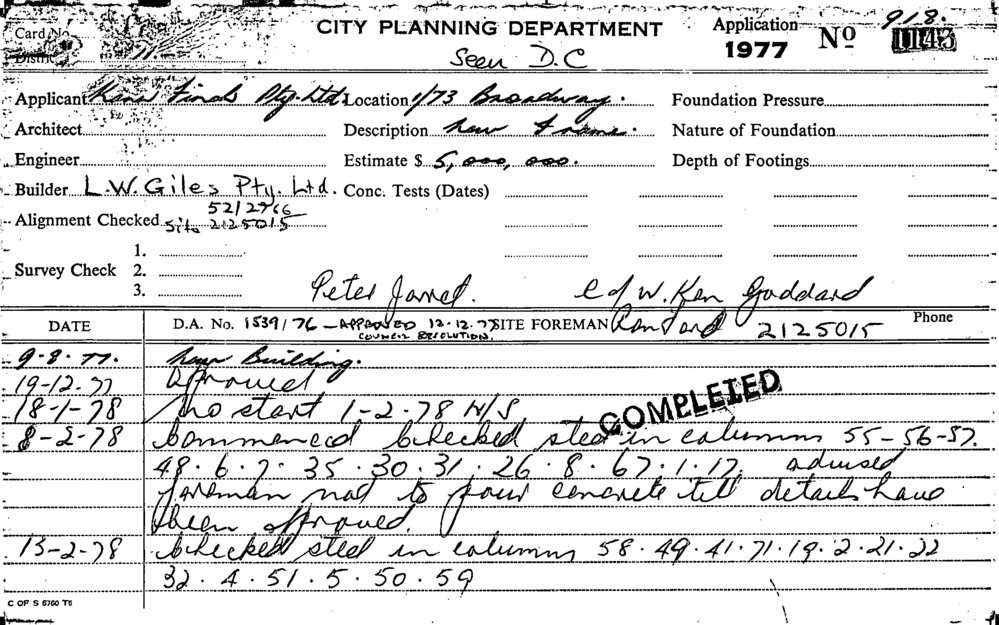 Card No.
CITY PLANNING DEPARTMENT
Application 1977 Nº 918. 1143
District
Seen D.C
Applicant Pty. Ltd. Location 1/73 Broadway. Foundation Pressure
Architect Description New Frame. Nature of Foundation
Engineer Estimate $ 5,000,000. Depth of Footings
Builder L.W. Giles Pty. Ltd. Conc. Tests (Dates)
52/2966
Alignment Checked Site 2125015
1.
Survey Check 2.
3.
Peter C of W. Ken Goddard
DATE D.A. No. 1539/76 – APPROVED 12.12.77 SITE FOREMAN Ron 2125015 Phone
COUNCIL RESOLUTION.
9-8-77. New Building.
19-12-77 Approved
18-1-78 No start 1-2-78 N/S
COMPLETED
8-2-78 Commenced checked steel in columns 55-56-57.
48.6.7.35.30.31.26.8.67.1.17. advised
foreman not to pour concrete till details have
been approved.
13-2-78 Checked steel in columns 58.49.41.71.19.2.21.22
32.4.51.5.50.59
C OF S 6760 T6